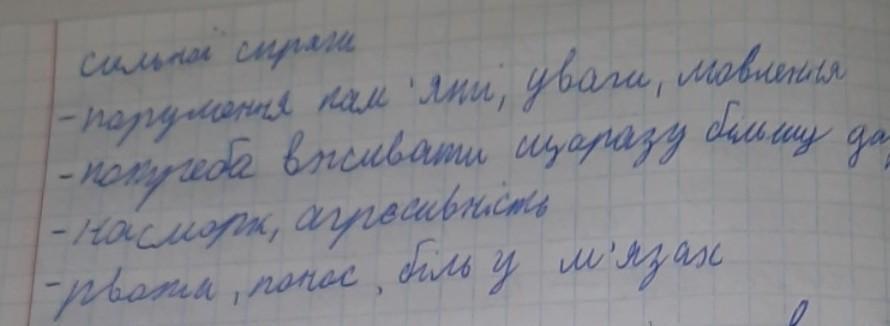 сильної спраги
-порушення пам'яті, уваги, мовлення
-потреба вживати щоразу більшу
-насморк, агресивність
-рвота, понос, біль у м'язах